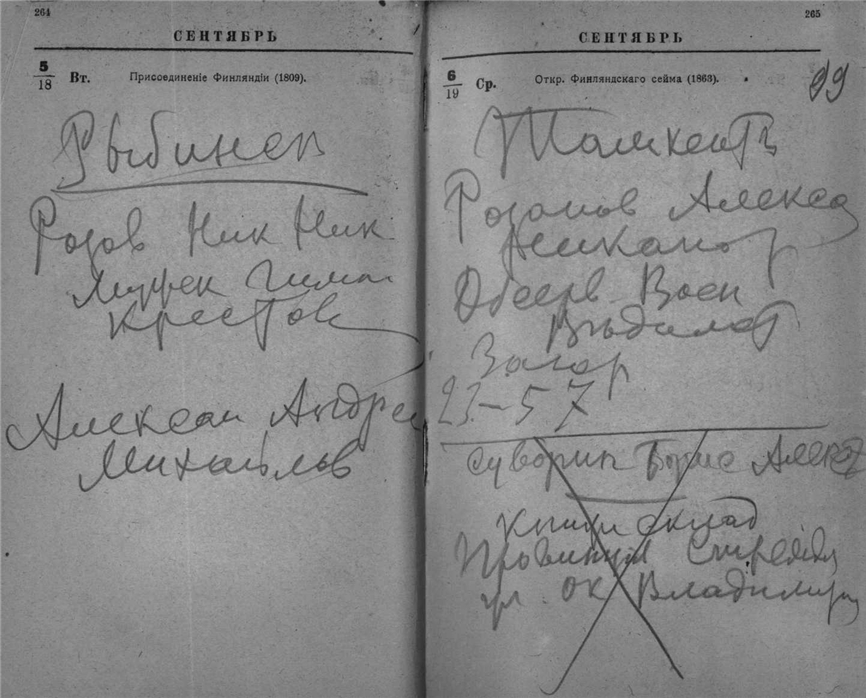 264
СЕНТЯБРЬ
5/18 Вт. Присоединеніе Финляндіи (1809).
Рыбинск
Розов Ник Ник
Крестов
Алексан Андрее
Михайлов
265
СЕНТЯБРЬ
6/19 Ср. Откр. Финляндскаго сейма (1863).
99
Ташкентъ
Розанов Алекса
Никанор
Обсерв Воен
Загор
23-57
Суворин Борис Алекс
Книж склад
Провинция
ул. ок Владимир